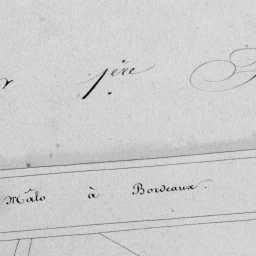 père
Mâlo à Bordeaux.